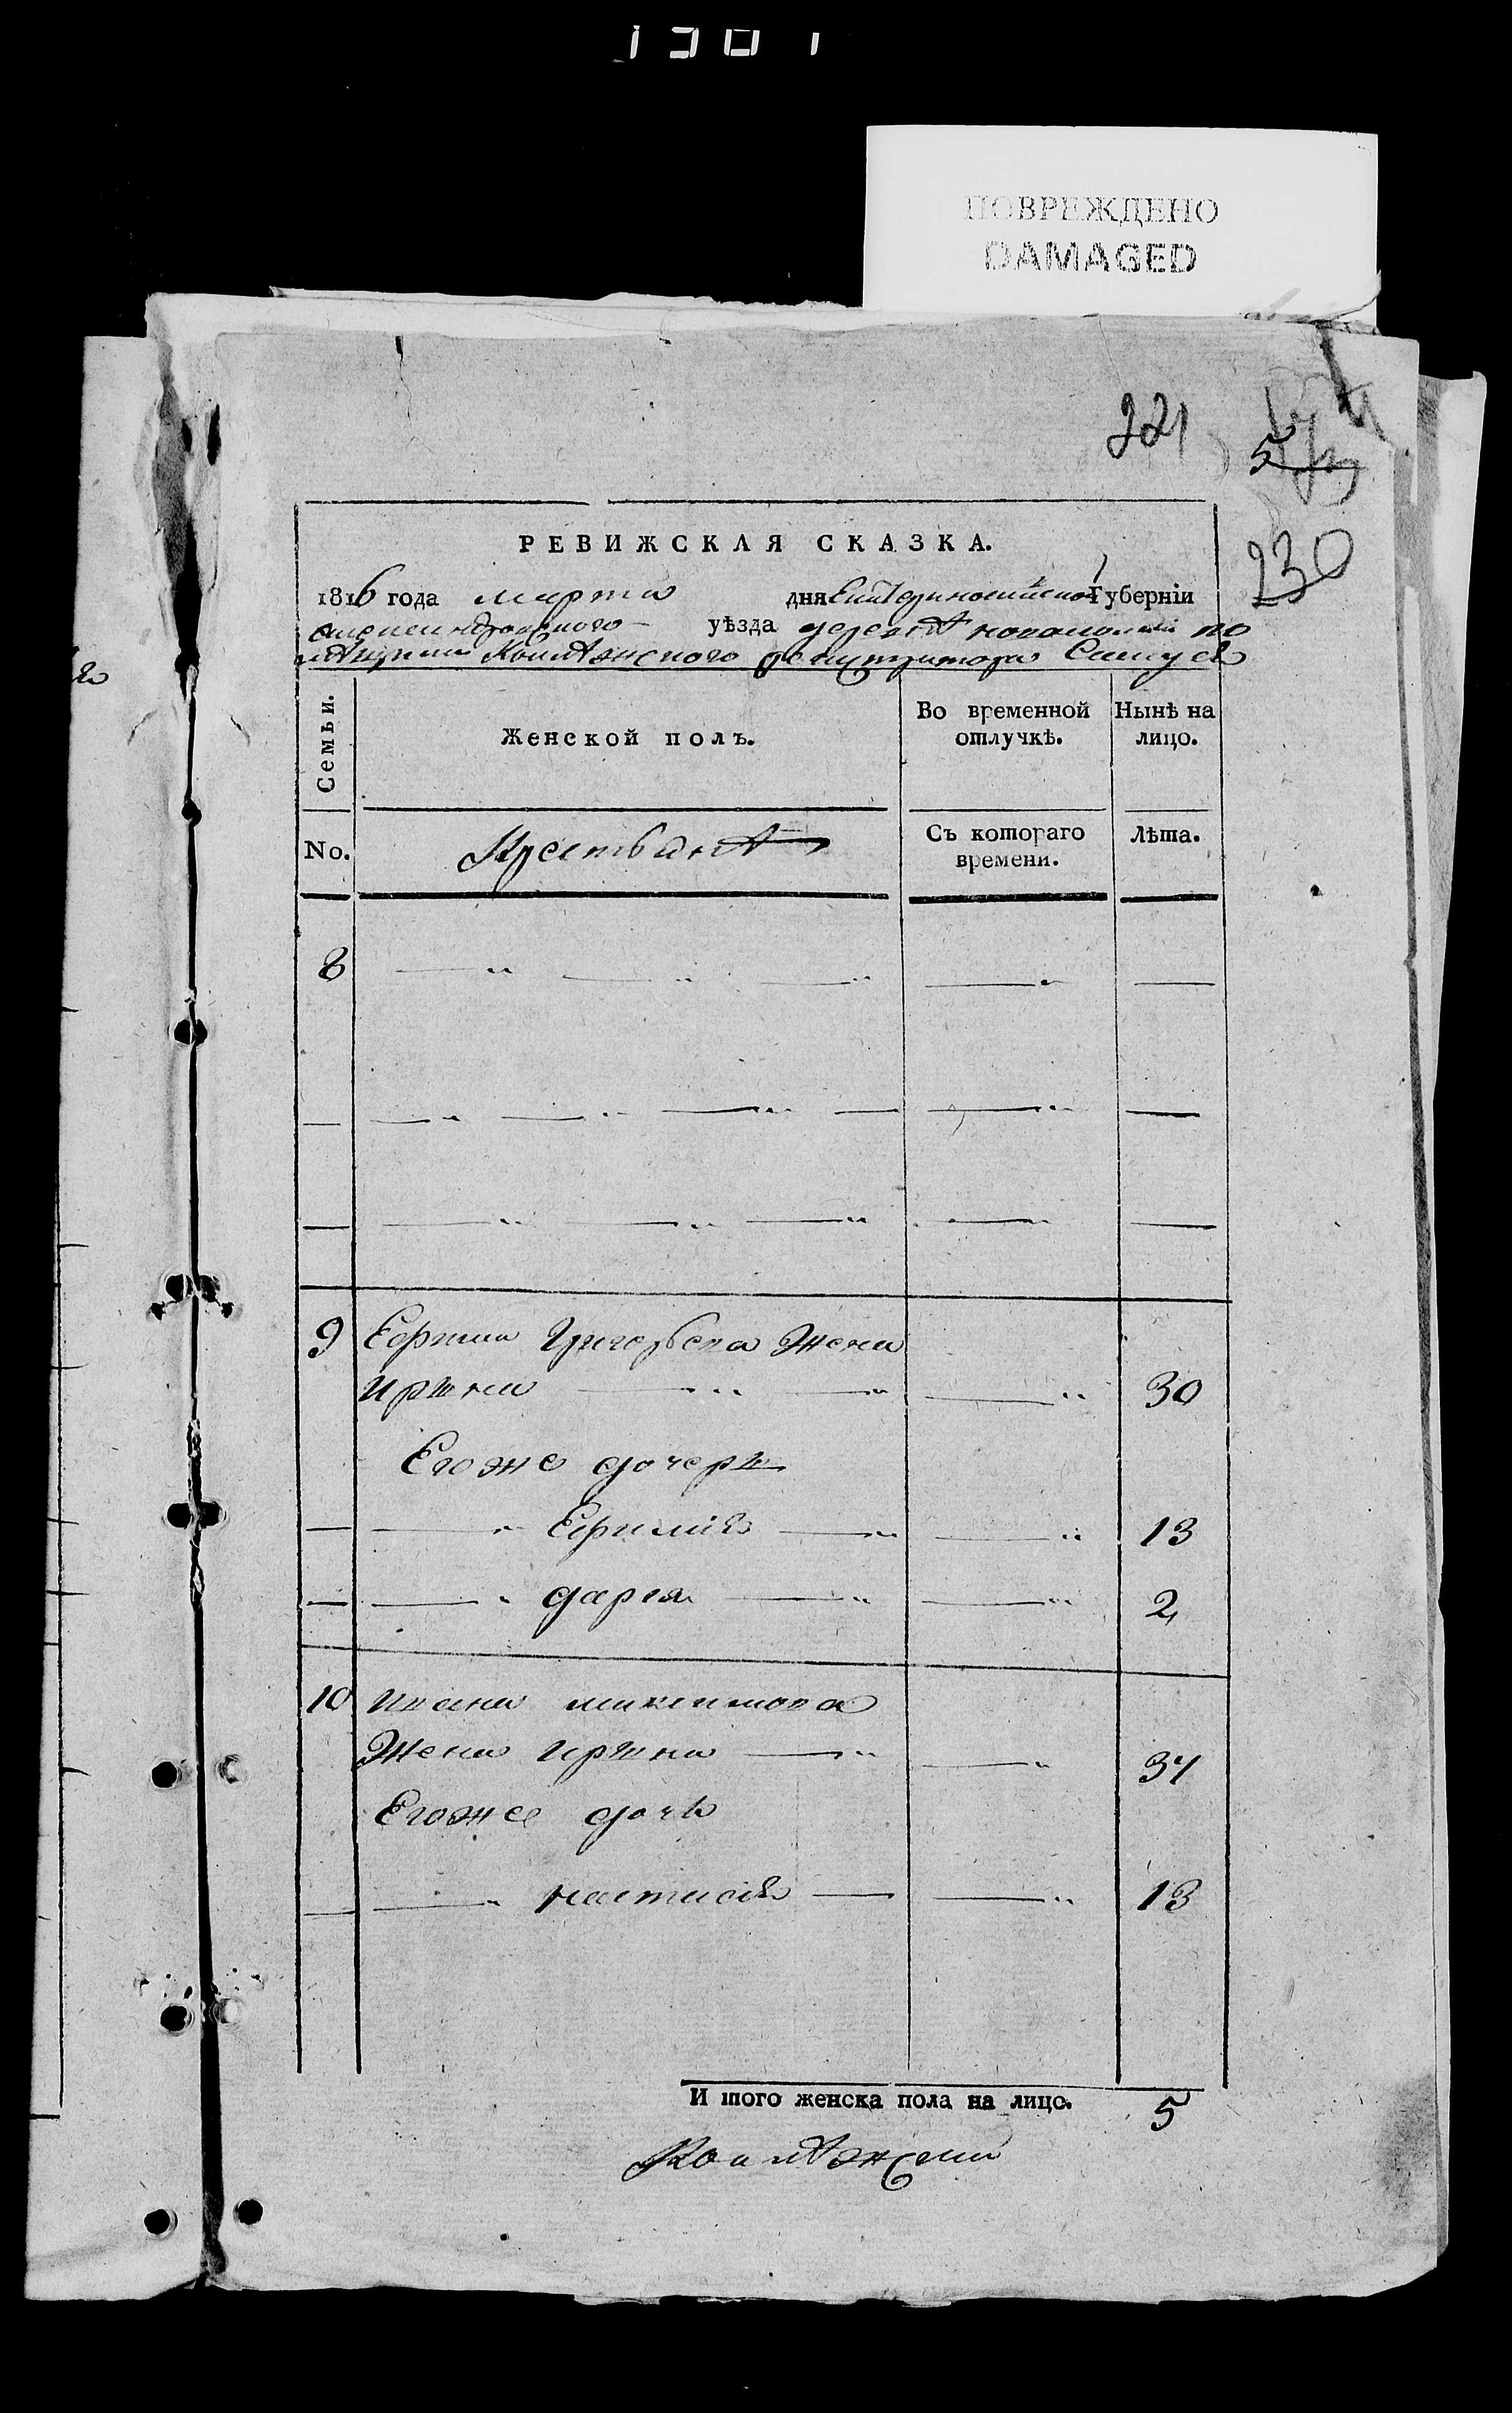 1301
ПОВРЕЖДЕНО
DAMAGED
221
5
230
РЕВИЖСКАЯ СКАЗКА.
1816 года марта дня Екатеринославской Губерніи
александровского уѣзда деревнѣ по
Коллѣжского
Семьи.
Женской полъ.
Во временной отлучкѣ.
Нынѣ на лицо.
No.
Крестьянѣ
Съ котораго времени.
Лѣта.
8
9 Ефима Григорьева Жена
Ирина 30
Егоже дочери
Ефимія 13
дарея 2
10 Ивана максимова
Жена Ирина 34
Егоже дочь
настасія 13
И того женска пола на лицо. 5